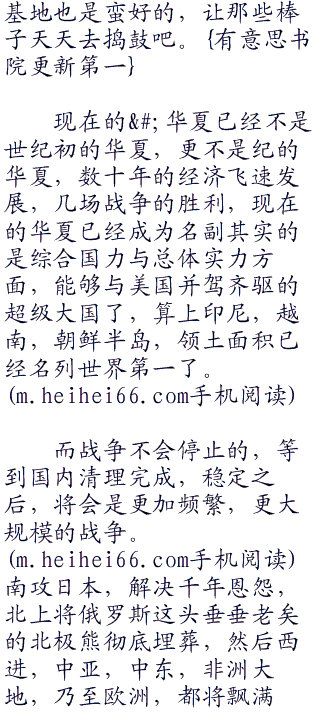 基地也是蛮好的，让那些棒
子天天去捣鼓吧。{有意思书
院更新第一}
现在的&#;华夏已经不是
世纪初的华夏，更不是纪的
华夏，数十年的经济飞速发
展，几场战争的胜利，现在
的华夏已经成为名副其实的
是综合国力与总体实力方
面，能够与美国并驾齐驱的
超级大国了，算上印尼，越
南，朝鲜半岛，领土面积已
经名列世界第一了。
(m.heihei66.com手机阅读)
而战争不会停止的，等
到国内清理完成，稳定之
后，将会是更加频繁，更大
规模的战争。
(m.heihei66.com手机阅读)
南攻日本，解决千年恩怨，
北上将俄罗斯这头垂垂老矣
的北极熊彻底埋葬，然后西
进，中亚，中东，非洲大
地，乃至欧洲，都将飘满